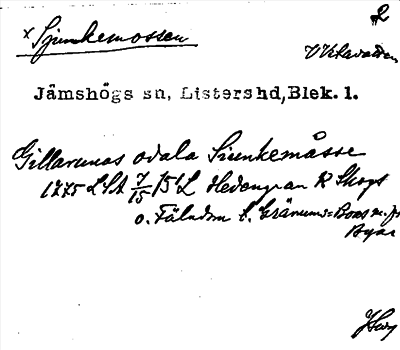 2
x Sjunkemossen
Jämshögs sn, Listershd, Blek. l.
Gillarunas odala Siunkemåsse
1775 LSA 7/15 151 Hedengran R Skogs
o. Fäladsm t. Gränums= Boas m. fl.
Byar